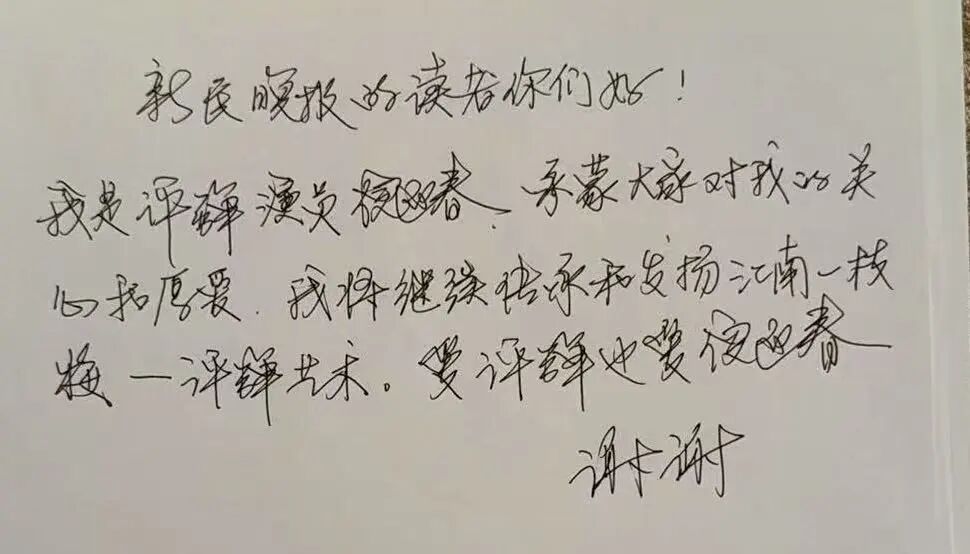 新民晚报的读者你们好！
我是评弹演员倪迎春、承蒙大家对我的关
心和厚爱.我将继续传承和发扬江南一枝
梅一评弹艺术。爱评弹也爱倪迎春
谢谢